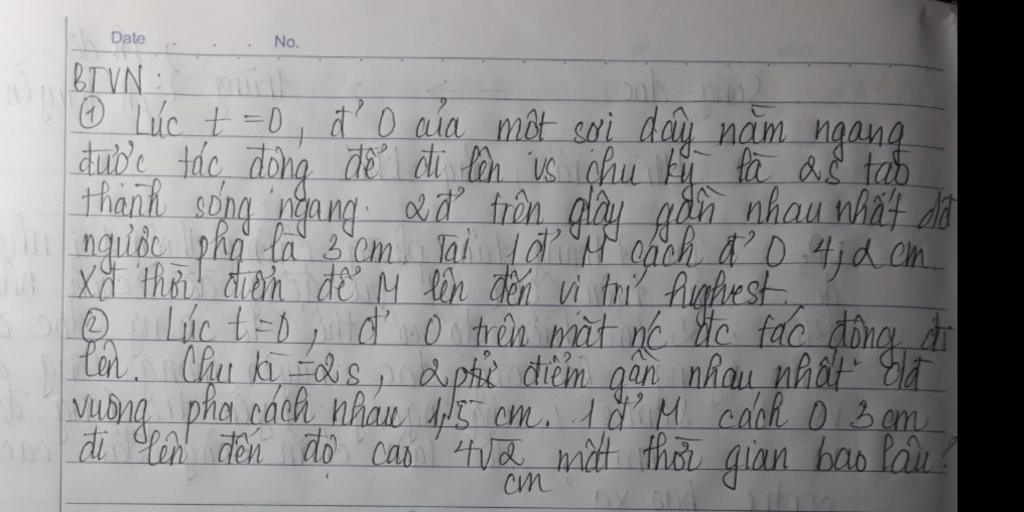 Date No.
BTVN:
① Lúc t = 0, đ' O của một sợi dây nằm ngang
được tác động để đi lên vs chu kỳ là 2s tạo
thành sóng ngang. 2 đ' trên dây gần nhau nhất dđ
ngược pha là 3 cm. Tại 1 đ' M cách đ' O 4,2 cm
Xđ thời điểm để M lên đến vị trí highest.
② Lúc t = 0, đ' O trên mặt nc đc tác động đi
lên. Chu kì = 2s, 2 điểm gần nhau nhất dđ
vuông pha cách nhau 1,5 cm. 1 đ' M cách O 3 cm
đi lên đến độ cao 4√2 mất thời gian bao lâu?
cm